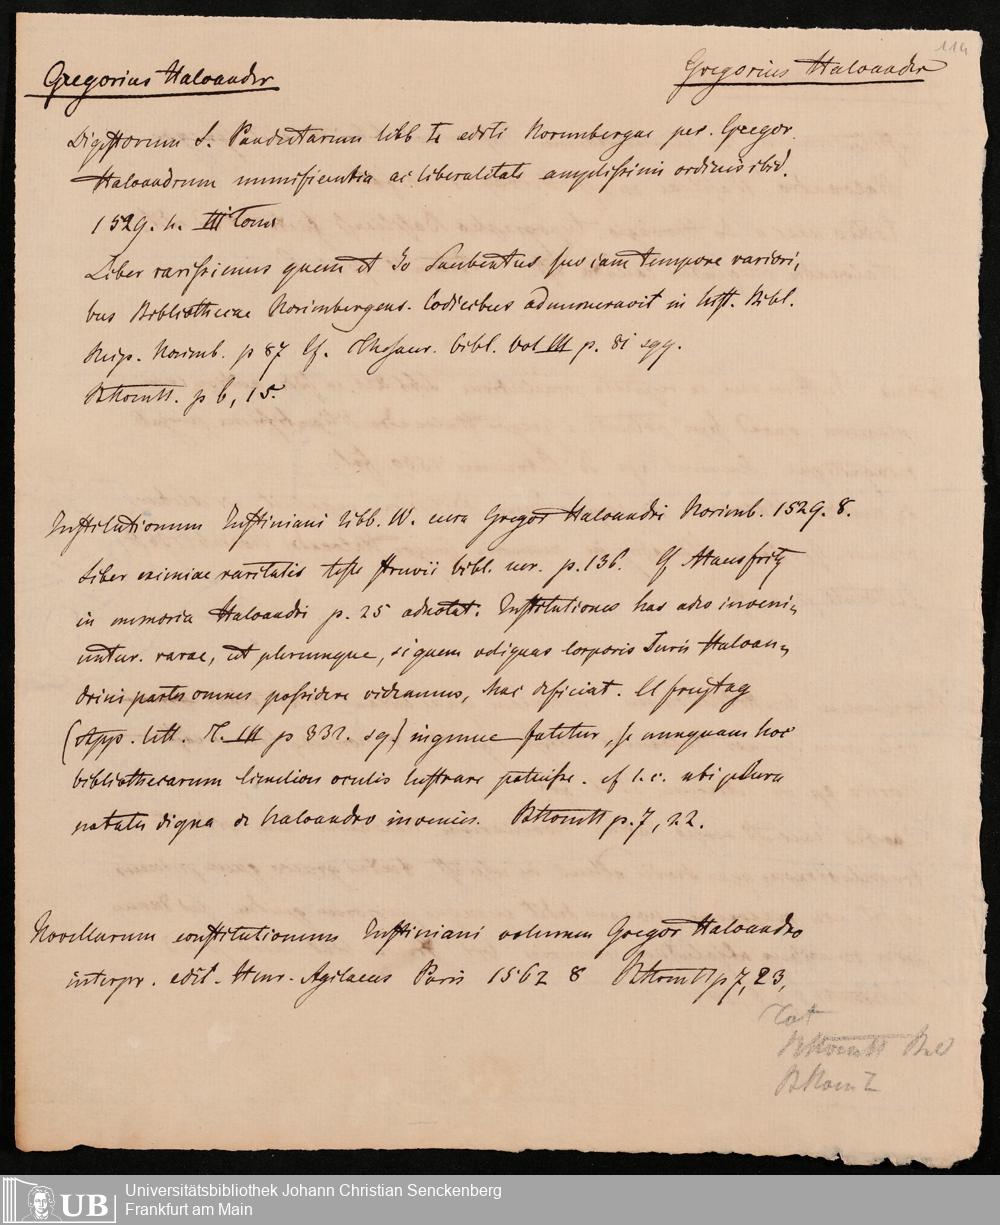 114
Gregorius Haloander
Gregorius Haloander
Digestorum s. Pandectarum libb editi Norimbergae per. Gregor.
Haloandrum munificentia ac liberalitate amplissimi ordinis ibid.
1529. 4. III Tom
Liber rarissimus quem et Jo Saubertus suo iam tempore rariori,
bus Bibliothecae Norimbergens. Codicibus adnumeravit in hist. Bibl.
Reip. Norimb. p 87 Cf. Thesaur. bibl. Vol III p. 81 sqq.
p 6, 15.
Institutionum Justiniani libb. IV. cura Gregor Haloandri Norimb. 1529. 8.
Liber eximiae raritatis teste Struvii bibl. p. 136. Cf
in memoria Haloandri p. 25 adnotat: Institutiones has adeo inveni,
untur. rarae, ut plerumque, si quem reliquas Corporis Juris Haloan,
drini partes omnes possidere videamus, haec deficiat. Et freytag
(App. litt. T. III p 832. sq.) ingenue fatetur, se nunquam hoc
bibliothecarum cimelion oculis lustrare potuisse. cf l. c. ubi plura
notatu digna de haloandro invenies. p. 7, 22.
Novellarum constitutionum Justiniani volumen Gregor Haloandro
interpr. edit. Henr. Agilaeus Paris 1562 8 p 7, 23,
Cat
Universitätsbibliothek Johann Christian Senckenberg
UB Frankfurt am Main